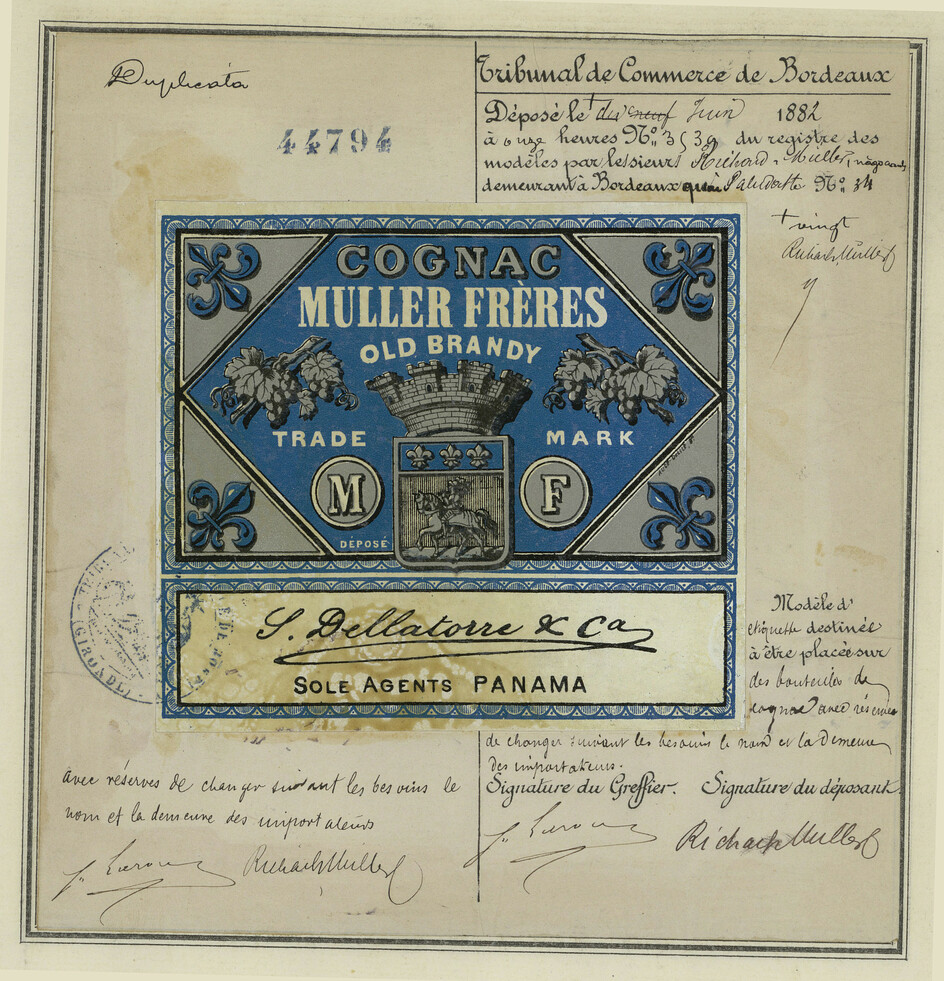 Duplicata
44794
Tribunal de Commerce de Bordeaux
Déposé le + dix neuf Juin 1882
à onze heures No. 3539 du registre des
modèles par les sieurs Richard & Muller, négociants
demeurant à Bordeaux quai Paludate No. 34
+ vingt
Richard & Muller
COGNAC
MULLER FRÈRES
OLD BRANDY
TRADE MARK
M F
DÉPOSÉ
S. Dellatorre & Ca
SOLE AGENTS PANAMA
TRIBUNAL
(GIRONDE)
Modèle d'
étiquette destinée
à être placée sur
des bouteilles de
cognac avec réserves
de changer suivant les besoins le nom et la demeure
des importateurs.
Signature du Greffier. Signature du déposant.
Richard & Muller
avec réserves de changer suivant les besoins le
nom et la demeure des importateurs
Richard & Muller